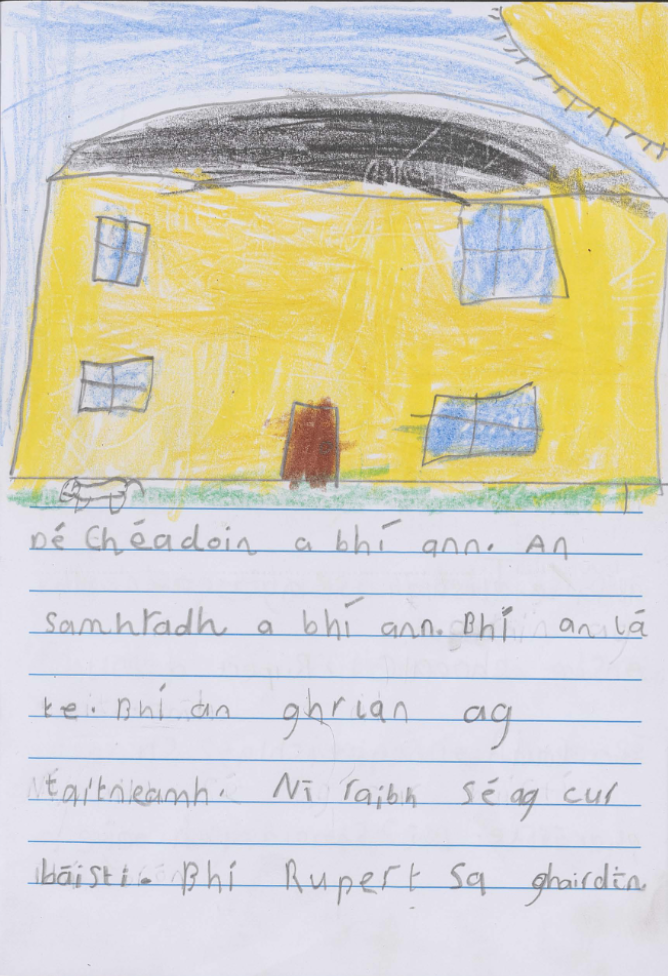 Dé Chéadoin a bhí ann. An
samhradh a bhí ann. Bhí an lá
te. Bhí an ghrian ag
taitneamh. Ní raibh sé ag cur
báisti. Bhí Rupert sa ghairdín.